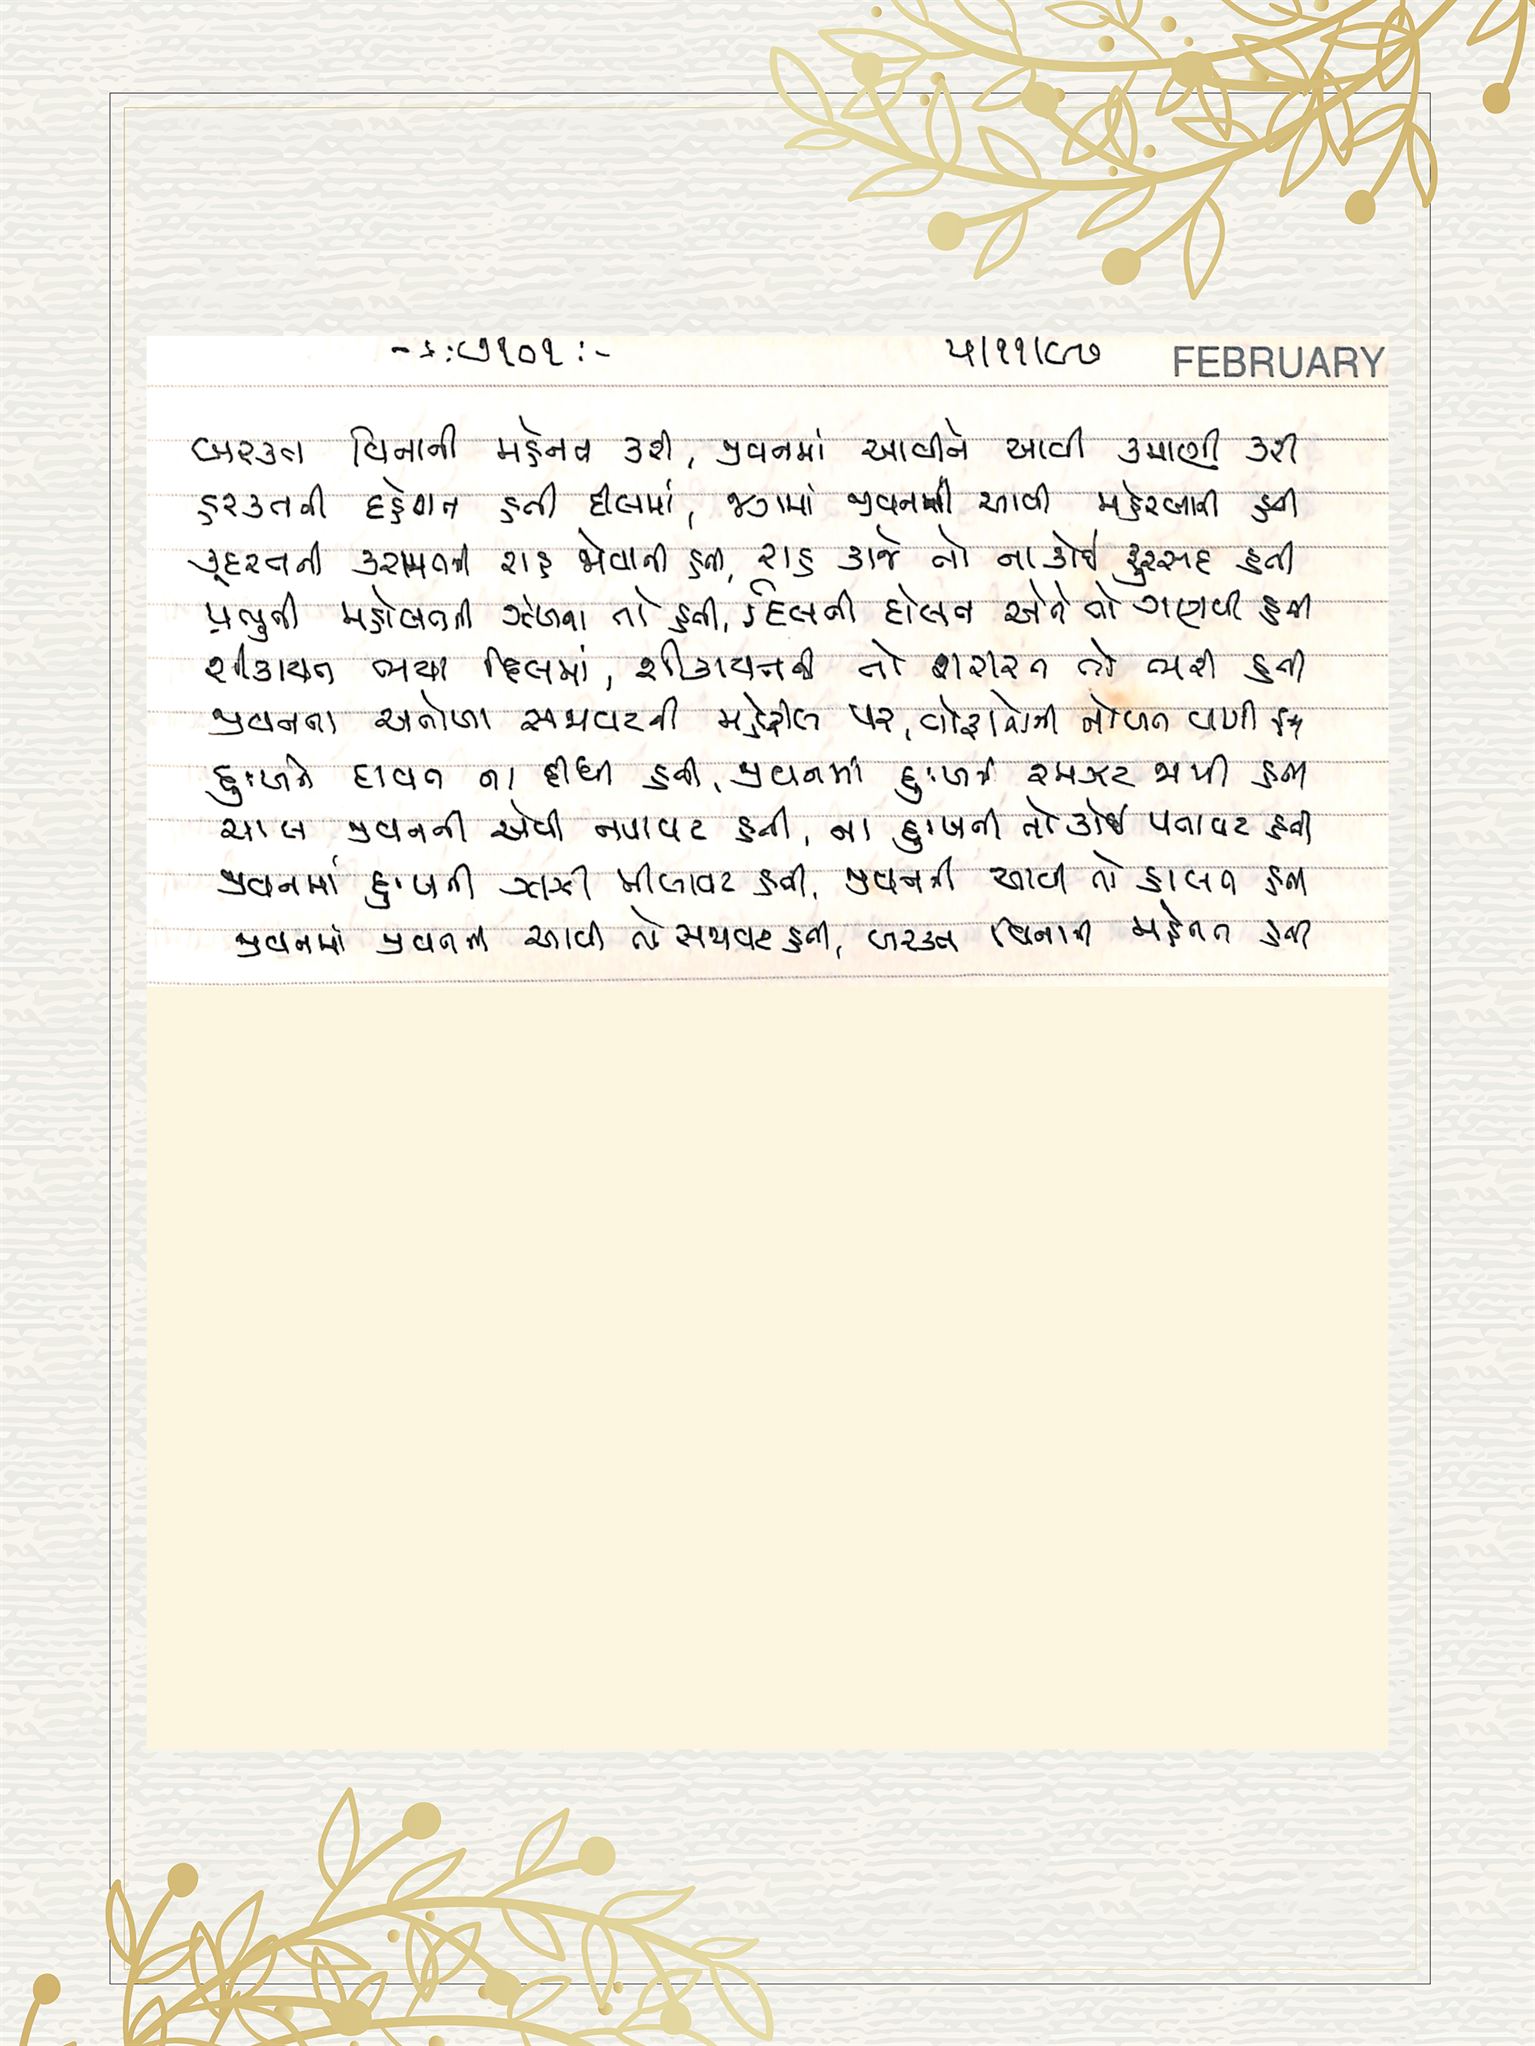 -ક:૭૧૦૧:- ૫/૧૧/૯૭ FEBRUARY
બરકત વિનાની મહેનત કરી, જીવનમાં આવીને આવી કમાણી કરી
હરકતની દહેશત હતી દીલમાં, જગમાં જીવનની આવી મહેરબાની હતી
કુદરતની કરામતની રાહ જોવાની હતી, રાહ કાજે તો ના કોઈ ફુરસદ હતી
પ્રભુની મહોબતની ઝંખના તો હતી, દિલની દોલત એને તો ગણવી હતી
શીકાયત ભર્યા દિલમાં, શીકાયતની તો શરારત તો ભરી હતી
જીવનના અનોખા સજાવટની મહેફીલ પર, તોફાનોની નોબત વાગી હતી
દુઃખને દાવત ના દીધી હતી, જીવનમાં દુઃખની રમઝટ જામી હતી
ચાલ જીવનની એવી બનાવટ હતી, ના દુઃખની તો કોઈ પતાવટ હતી
જીવનમાં દુઃખની ઝાઝી મીલાવટ હતી, જીવનની આવી તો હાલત હતી
જીવનમાં જીવનની આવી તો સજાવટ હતી, બરકત વિનાની મહેનત હતી